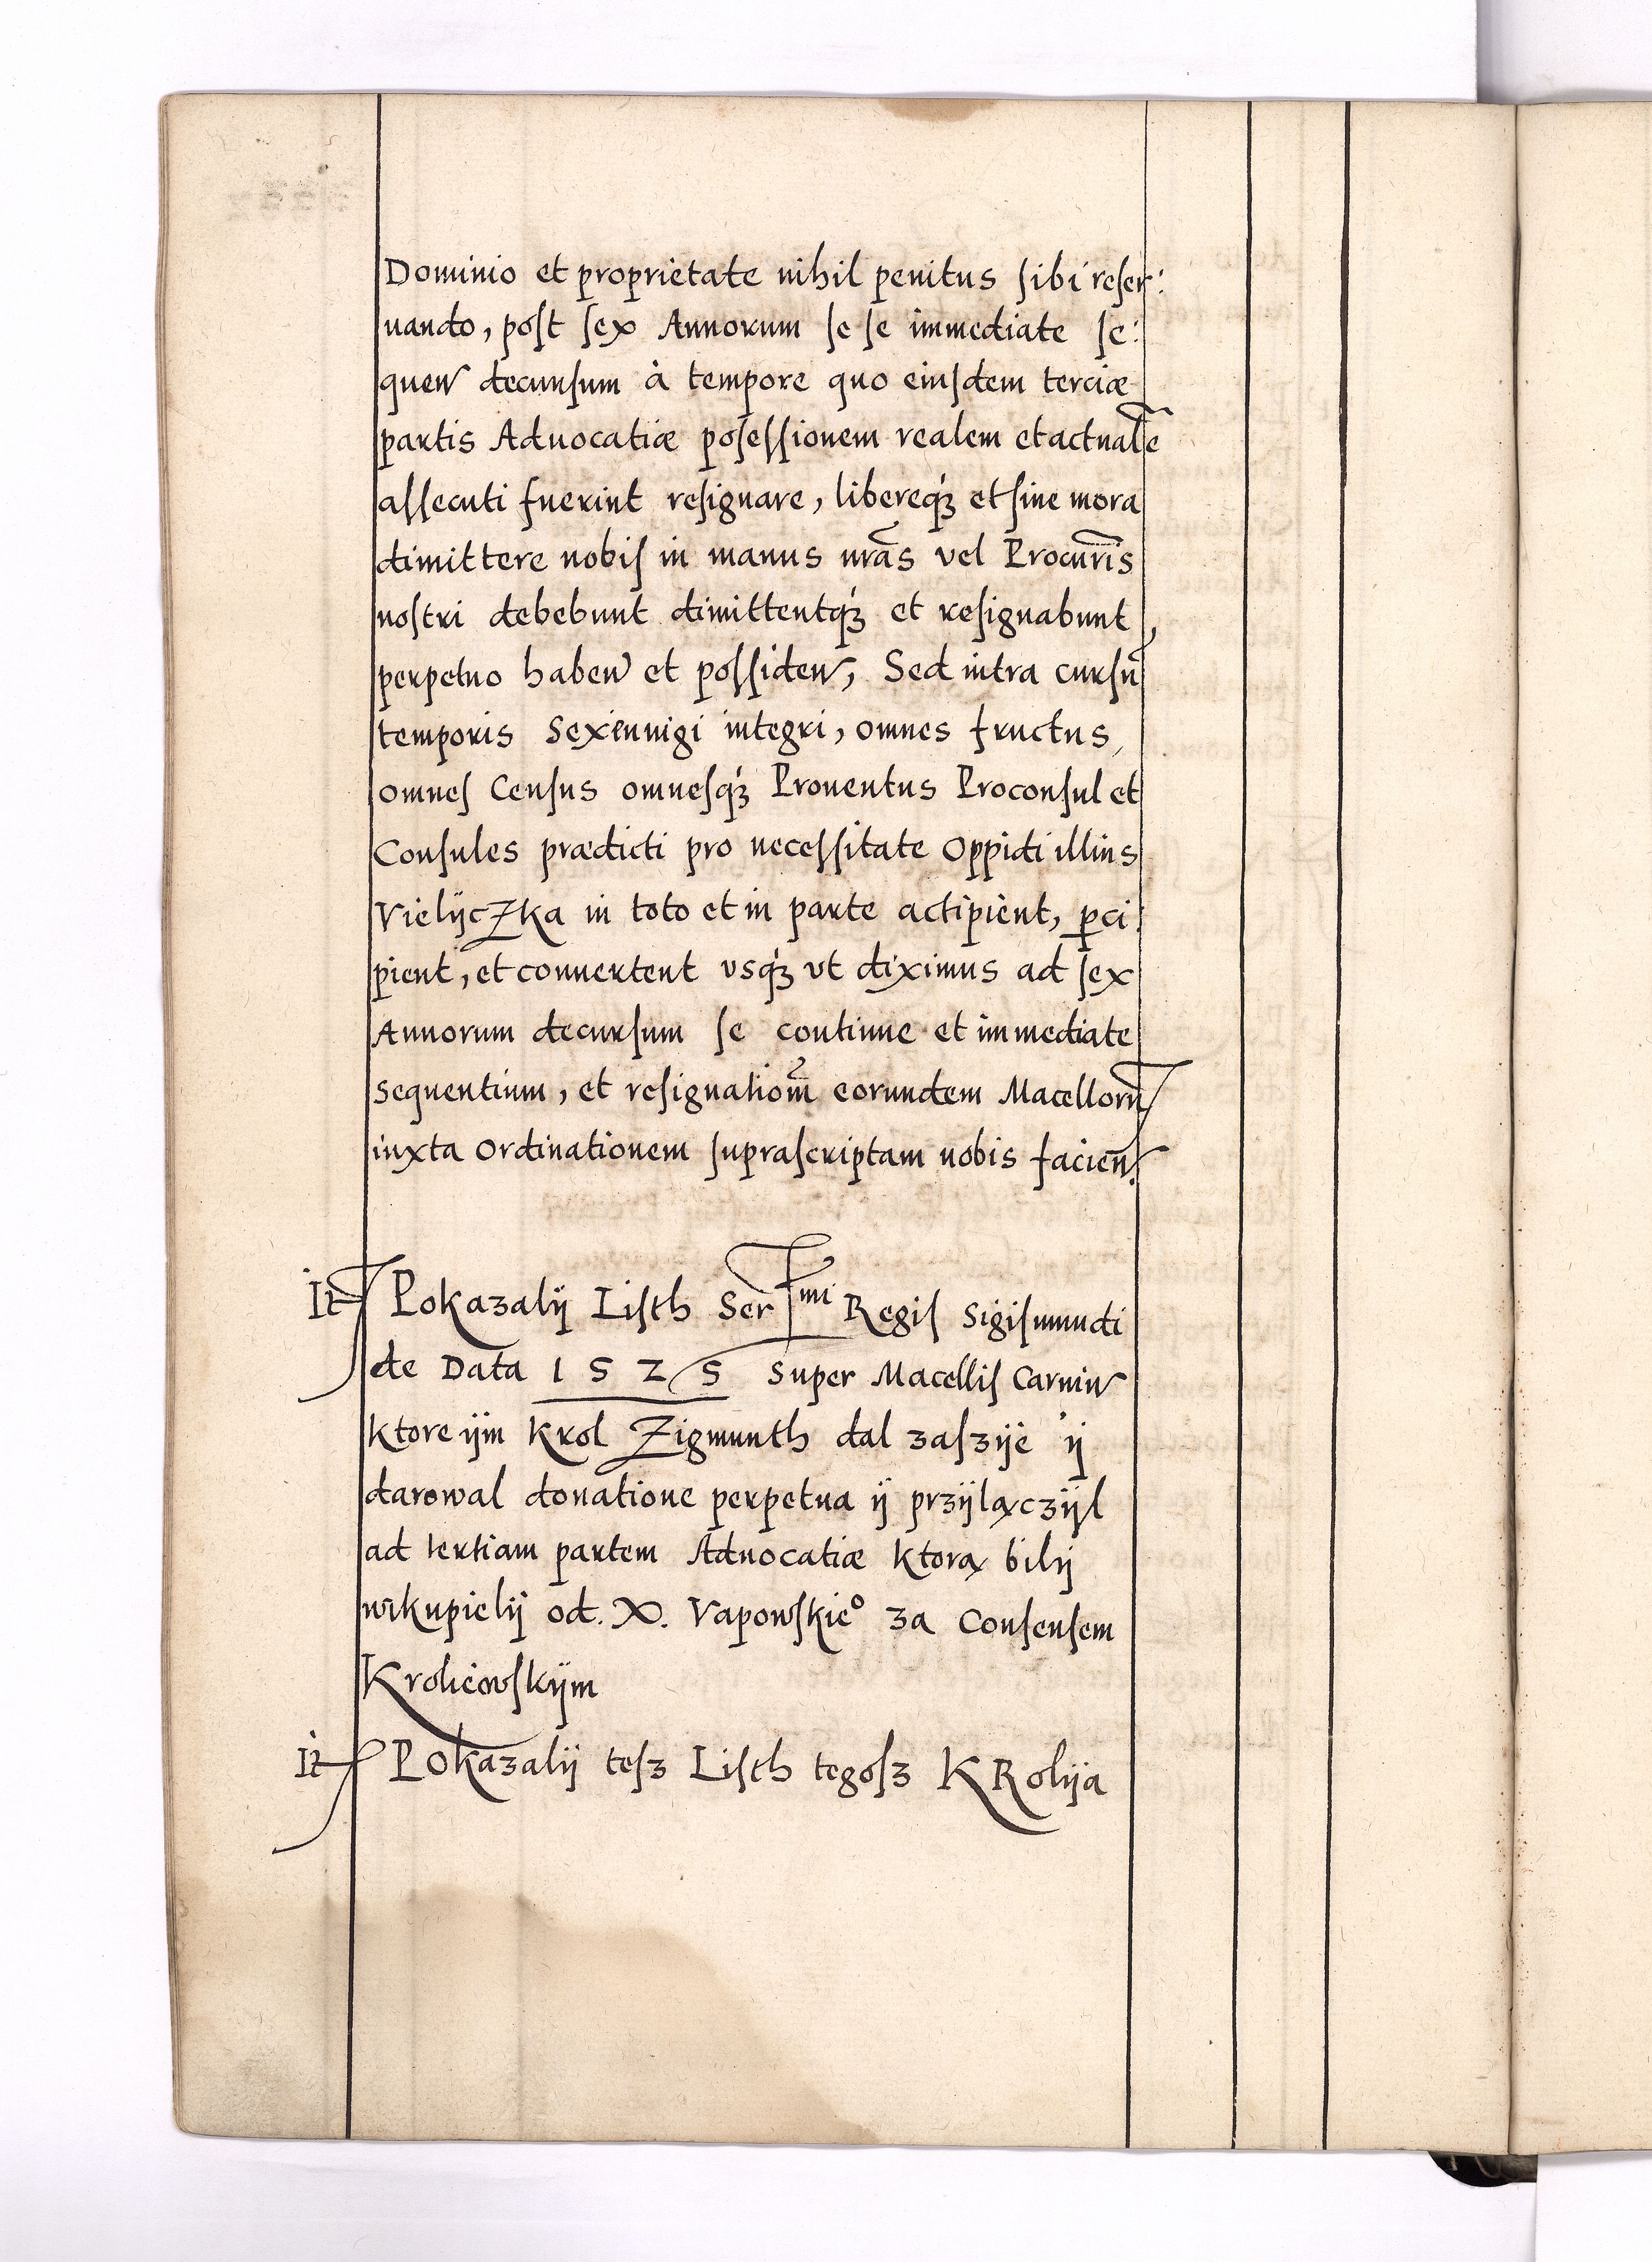 Dominio et proprietate nihil penitus ſibi reſer:
uando, poſt ſex Annorum ſe ſe immediate ſe:
quen decurſum à tempore quo eiuſdem terciæ
partis Aduocatiæ poſeſſionem realem et actualē
aſſecuti fuerint reſignare, libereqꝫ et ſine mora
dimittere nobiſ in manus nr̃as vel Procur̃is
noſtri debebunt dimittentqꝫ et reſignabunt,
perpetuo haben et poſſiden, Sed intra curſũ
temporis Sexennigi integri, omnes fructus,
omneſ Cenſus omneſqꝫ Prouentus Proconſul et
Conſules prædicti pro neceſſitate Oppidi illius
Vielÿczka in toto et in parte actipient, ꝑci:
pient, et conuertent vsqꝫ vt diximus ad ſex
Annorum decurſum ſe continue et immediate
Sequentium, et reſignatiom̃ eorundem Macellorũ
iuxta Ordinationem ſupraſcriptam nobis facien̄.
It Pokazalÿ Liſth Serſmi Regiſ Sigiſmundi
de Data 1525 Super Macelliſ Carniu
ktore ÿm Krol Zigmunth dal zaſzÿe ÿ
darowal donatione perpetua ÿ przÿlączÿl
ad tertiam partem Aduocatiæ ktorą bilÿ
wikupielÿ od. X. Vapowſkieº za Conſenſem
Krolieowſkÿm
It Pokazalÿ teſz Liſth tegoſz KRolÿa